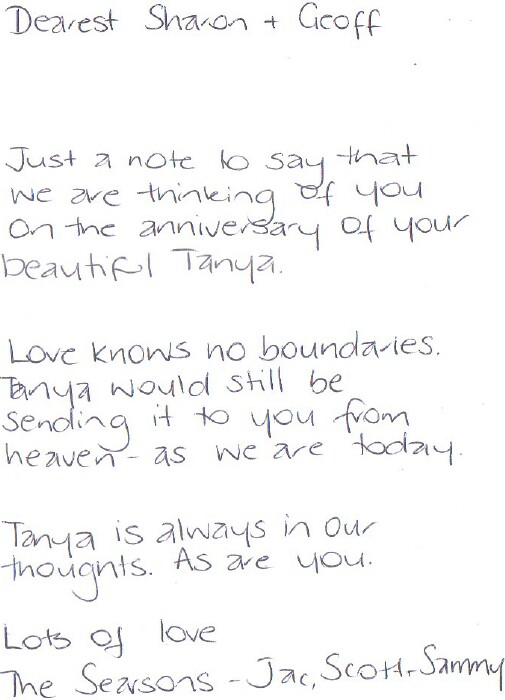 Dearest Sharon + Geoff
Just a note to say that
we are thinking of you
on the anniversary of your
beautiful Tanya.
Love knows no boundaries.
Tanya would still be
sending it to you from
heaven - as we are today.
Tanya is always in our
thoughts. As are you.
Lots of love
The Searsons - Jac, Scott + Sammy